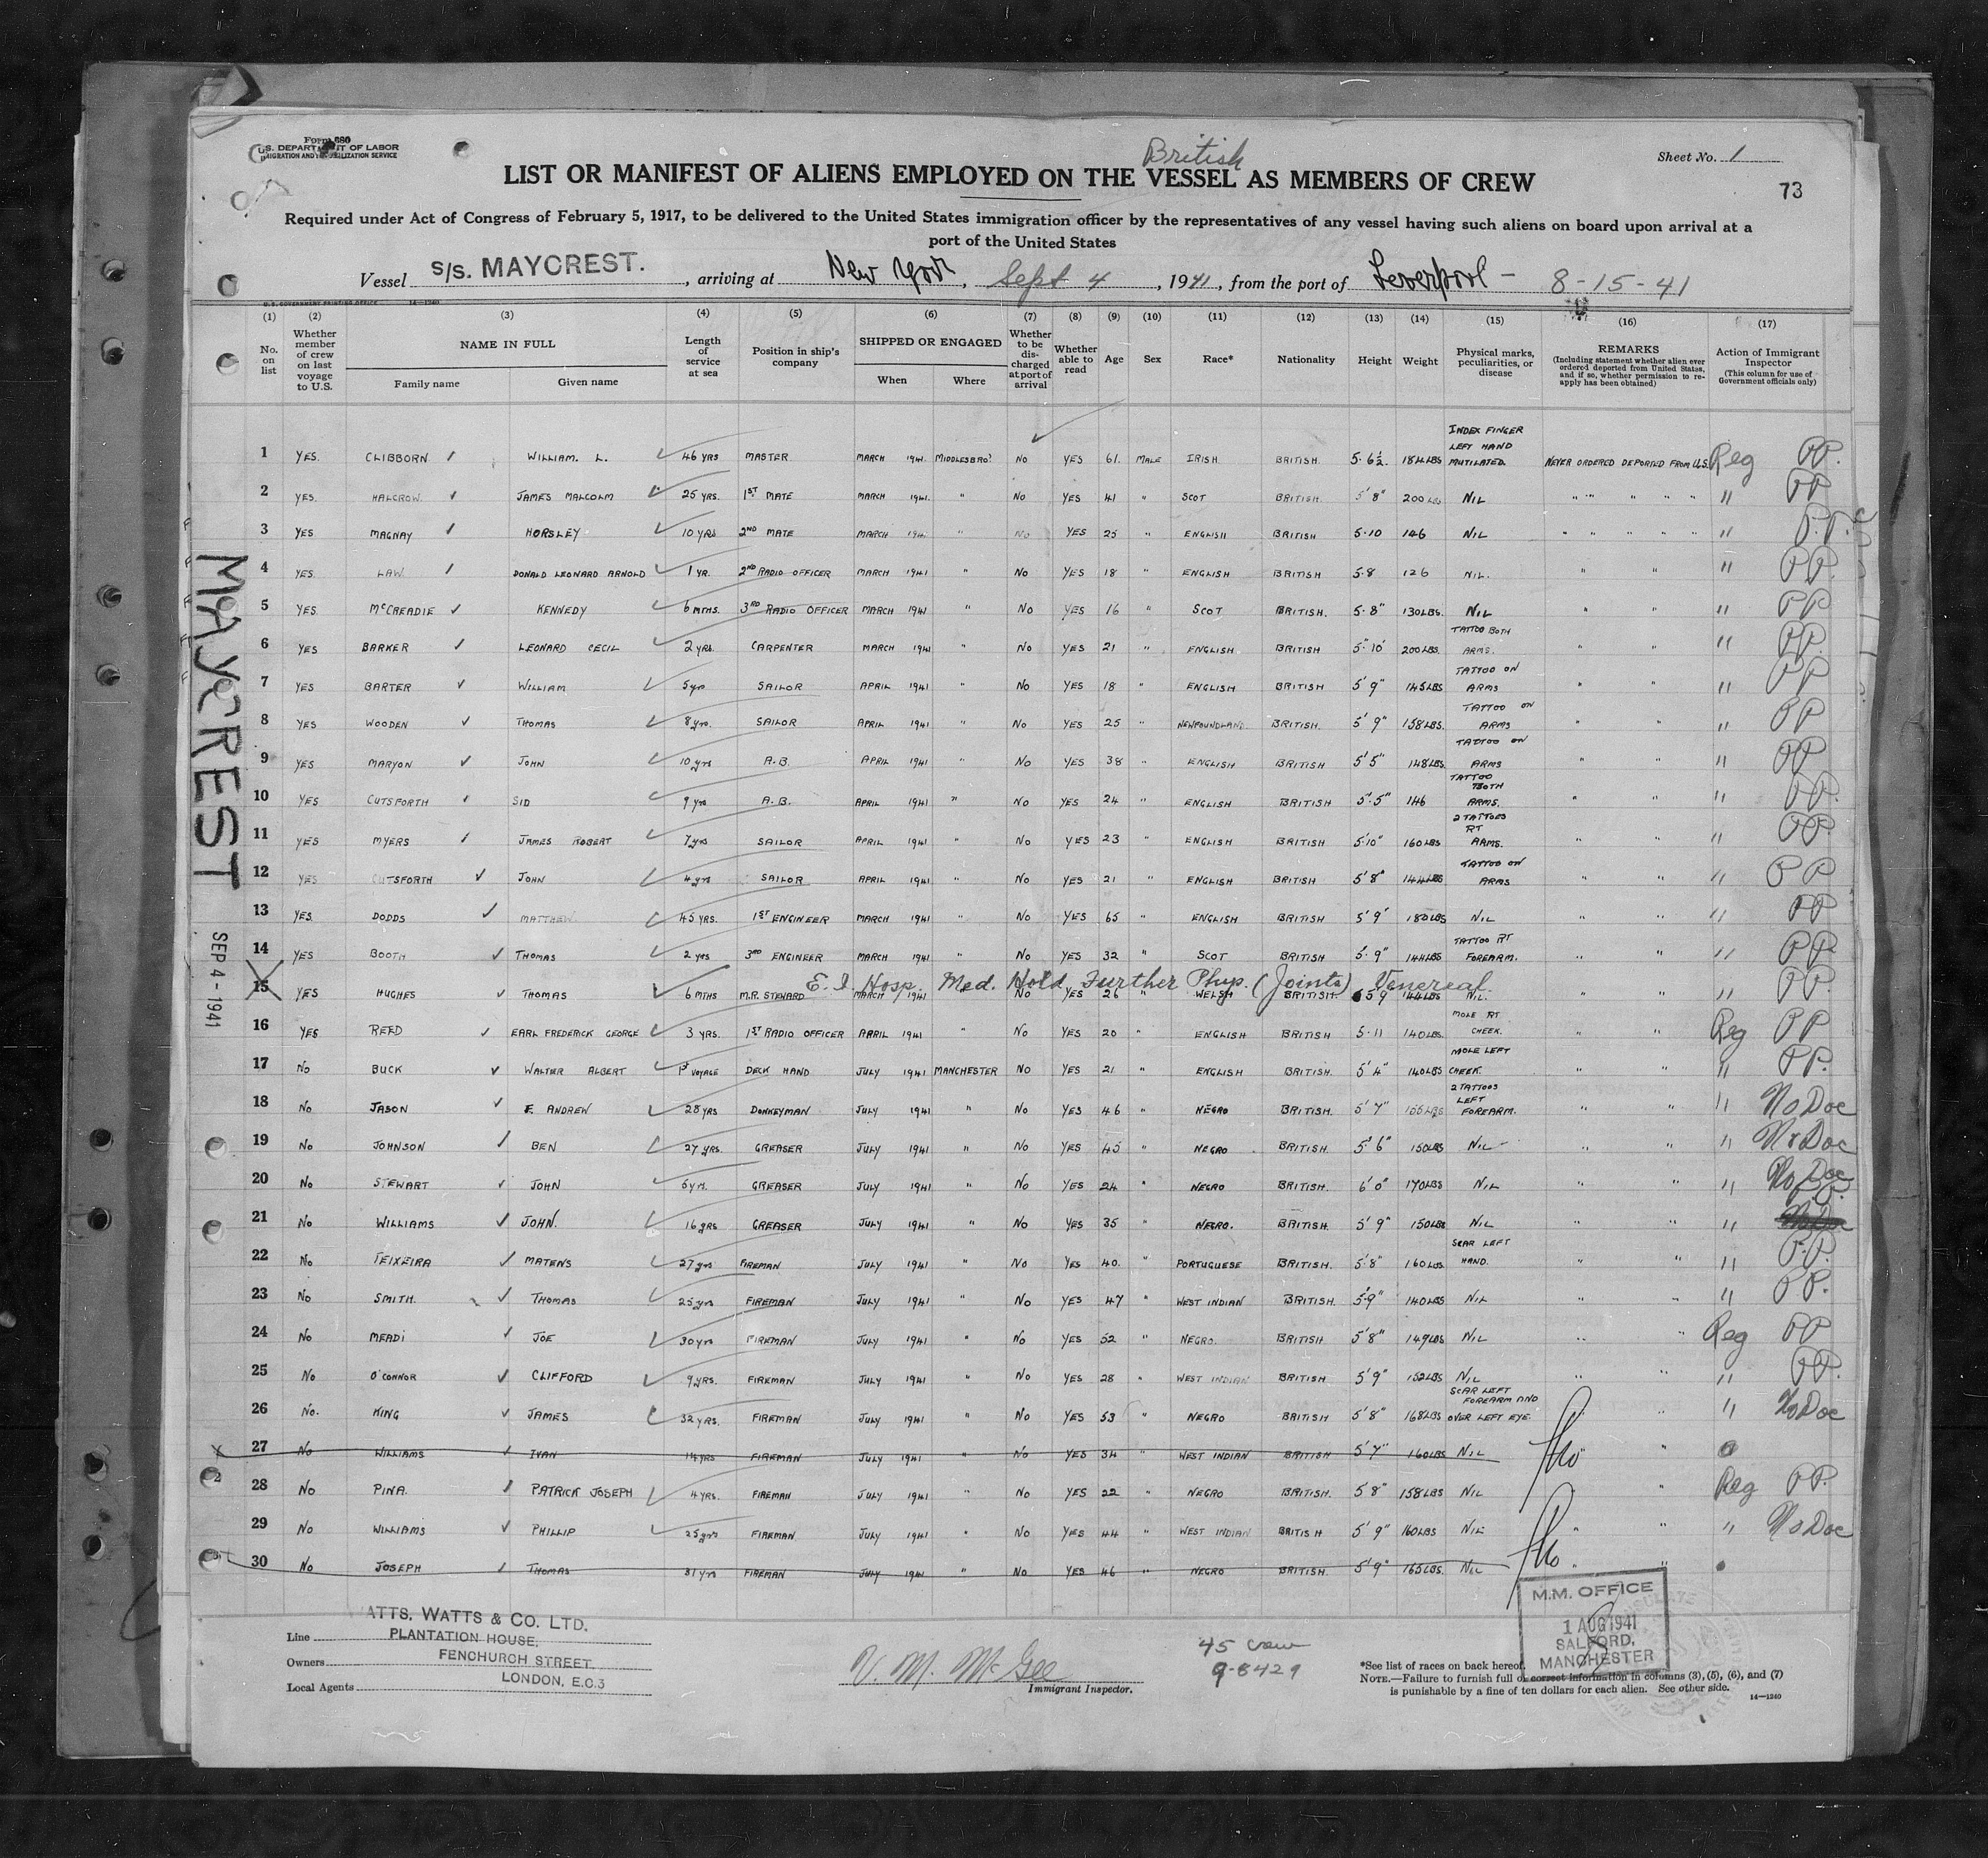 Form 680
U.S. DEPARTMENT OF LABOR
IMMIGRATION AND NATURALIZATION SERVICE
British
Sheet No. 1
LIST OR MANIFEST OF ALIENS EMPLOYED ON THE VESSEL AS MEMBERS OF CREW
73
Required under Act of Congress of February 5, 1917, to be delivered to the United States immigration officer by the representatives of any vessel having such aliens on board upon arrival at a
port of the United States
Vessel S/S. MAYCREST. , arriving at New York , Sept 4 , 1941, from the port of Liverpool - 8-15-41
U.S. GOVERNMENT PRINTING OFFICE 14-1240
(1) No. on list
(2) Whether member of crew on last voyage to U.S.
(3) NAME IN FULL Family name Given name
(4) Length of service at sea
(5) Position in ship's company
(6) SHIPPED OR ENGAGED When Where
(7) Whether to be discharged at port of arrival
(8) Whether able to read
(9) Age
(10) Sex
(11) Race*
(12) Nationality
(13) Height
(14) Weight
(15) Physical marks, peculiarities, or disease
(16) REMARKS (Including statement whether alien ever ordered deported from United States, and if so, whether permission to reapply has been obtained)
(17) Action of Immigrant Inspector (This column for use of Government officials only)
1 YES. CLIBBORN WILLIAM. L. 46 YRS MASTER MARCH 1941. MIDDLESBRO' NO YES 61. MALE IRISH. BRITISH. 5·6½ 184 LBS INDEX FINGER LEFT HAND MUTILATED NEVER ORDERED DEPORTED FROM U.S. Reg PP.
2 YES. HALCROW. JAMES MALCOLM 25 YRS. 1ST MATE MARCH 1941. " NO YES 41 " SCOT BRITISH. 5'8" 200 LBS NIL " " " " " " PP
3 YES MAGNAY HORSLEY 10 YRS 2ND MATE MARCH 1941 " No YES 25 " ENGLISH BRITISH 5·10 146 NIL " " " " " " P.P.
4 YES. LAW. DONALD LEONARD ARNOLD 1 YR. 2ND RADIO OFFICER MARCH 1941 " No YES 18 " ENGLISH BRITISH 5·8 126 NIL. " " " PP.
5 YES. McCREADIE KENNEDY 6 MTHS. 3RD RADIO OFFICER MARCH 1941 " No YES 16 " SCOT BRITISH. 5·8" 130 LBS. NIL " " " PP
6 YES BARKER LEONARD CECIL 2 YRS. CARPENTER MARCH 1941 " No YES 21 " ENGLISH BRITISH 5·10 200 LBS. TATTOO BOTH ARMS. " " " PP.
7 YES BARTER WILLIAM 5 yrs SAILOR APRIL 1941 " No YES 18 " ENGLISH BRITISH 5'9" 145 LBS TATTOO ON ARMS " " " PP
8 YES WOODEN THOMAS 8 yrs. SAILOR APRIL 1941 " No YES 25 " NEWFOUNDLAND. BRITISH. 5'9" 158 LBS. TATTOO ON ARMS " " " PP
9 YES MARYON JOHN 10 yrs A.B. APRIL 1941 " No YES 38 " ENGLISH BRITISH 5'5" 148 LBS. TATTOO ON ARMS " " " PP
10 YES CUTSFORTH SID 9 yrs A.B. APRIL 1941 " No YES 24 " ENGLISH BRITISH 5'·5" 146 TATTOO BOTH ARMS. " " " PP.
11 YES MYERS JAMES ROBERT 7 yrs SAILOR APRIL 1941 " No YES 23 " ENGLISH BRITISH 5·10" 160 LBS 2 TATTOES RT ARMS. " " " PP
12 YES CUTSFORTH JOHN 4 yrs SAILOR APRIL 1941 " No YES 21 " ENGLISH BRITISH 5'8" 144 LBS TATTOO ON ARMS " " " PP
13 YES. DODDS MATTHEW. 45 YRS. 1ST ENGINEER MARCH 1941 " No YES 65 " ENGLISH BRITISH 5'9' 180 LBS NIL " " " PP
14 YES BOOTH THOMAS 2 yrs 3RD ENGINEER MARCH 1941 " No YES 32 " SCOT BRITISH 5·9" 144 LBS TATTOO RT FOREARM. " " " PP.
E. I. Hosp. Med. Hold Further Phys. (Joints) Venereal
15 YES HUGHES THOMAS 6 MTHS M.R. STEWARD MARCH 1941 No YES 26 " WELSH BRITISH. 5 9 144 LBS NIL. " PP.
16 YES REED EARL FREDERICK GEORGE 3 YRS. 1ST RADIO OFFICER APRIL 1941 " No YES 20 " ENGLISH BRITISH 5·11 140 LBS. MOLE RT CHEEK. " " Reg PP
17 No BUCK WALTER ALBERT 1ST VOYAGE DECK HAND JULY 1941 MANCHESTER No YES 21 " ENGLISH BRITISH. 5'4" 140 LBS MOLE LEFT CHEEK. " " " PP.
18 No JASON F. ANDREW 28 YRS DONKEYMAN JULY 1941 " No YES 46 " NEGRO BRITISH. 5'7" 155 LBS 2 TATTOOS LEFT FOREARM. " " " No Doc
19 No JOHNSON BEN 27 YRS. GREASER JULY 1941 " No YES 45 " NEGRO BRITISH. 5'6" 150 LBS NIL - " " " No Doc
20 No STEWART JOHN 5 yrs. GREASER JULY 1941 " No YES 24 " NEGRO BRITISH. 6'0" 170 LBS NIL " " " No Doc
21 No WILLIAMS JOHN. 16 yrs GREASER JULY 1941 " No YES 35 " NEGRO. BRITISH. 5'9" 150 LBS NIL " " " P.P.
22 No TEIXEIRA MATENS 27 yrs FIREMAN JULY 1941 " No YES 40. " PORTUGUESE BRITISH. 5·8" 160 LBS. SCAR LEFT HAND. " " " P.P.
23 No SMITH. THOMAS 25 yrs FIREMAN JULY 1941 " No YES 47 " WEST INDIAN BRITISH. 5·9" 140 LBS NIL " " " PP.
24 No MEADI JOE 30 yrs FIREMAN JULY 1941 " No YES 52 " NEGRO. BRITISH 5'8" 149 LBS NIL " " Reg PP
25 No O'CONNOR CLIFFORD 9 YRS. FIREMAN JULY 1941 " No YES 28 " WEST INDIAN BRITISH 5'9" 152 LBS NIL " " " PP.
26 No. KING JAMES 32 YRS. FIREMAN JULY 1941 " No YES 53 " NEGRO BRITISH 5'8" 168 LBS SCAR LEFT FOREARM AND OVER LEFT EYE. " " No Doc
27 No WILLIAMS IVAN 14 YRS FIREMAN JULY 1941 " No YES 34 " WEST INDIAN BRITISH 5'7" 160 LBS NIL "
28 No PINA PATRICK JOSEPH 4 YRS. FIREMAN JULY 1941 " No YES 22 " NEGRO BRITISH. 5 8" 158 LBS NIL " Reg PP.
29 No WILLIAMS PHILLIP 25 yrs FIREMAN JULY 1941 " No YES 44 " WEST INDIAN BRITISH 5'9" 160 LBS NIL " " " No Doc
30 No JOSEPH THOMAS 31 yrs FIREMAN JULY 1941 " No YES 46 " NEGRO BRITISH. 5'9" 165 LBS. NIL "
MAYCREST
SEP 4 - 1941
WATTS, WATTS & CO. LTD.
Line PLANTATION HOUSE,
Owners FENCHURCH STREET
Local Agents LONDON, E.C.3
V. M. McGee
Immigrant Inspector.
45 crew
9-8429
M.M. OFFICE
1 AUG 1941
SALFORD,
MANCHESTER
*See list of races on back hereof.
NOTE.—Failure to furnish full or correct information in columns (3), (5), (6), and (7)
is punishable by a fine of ten dollars for each alien. See other side.
14—1240